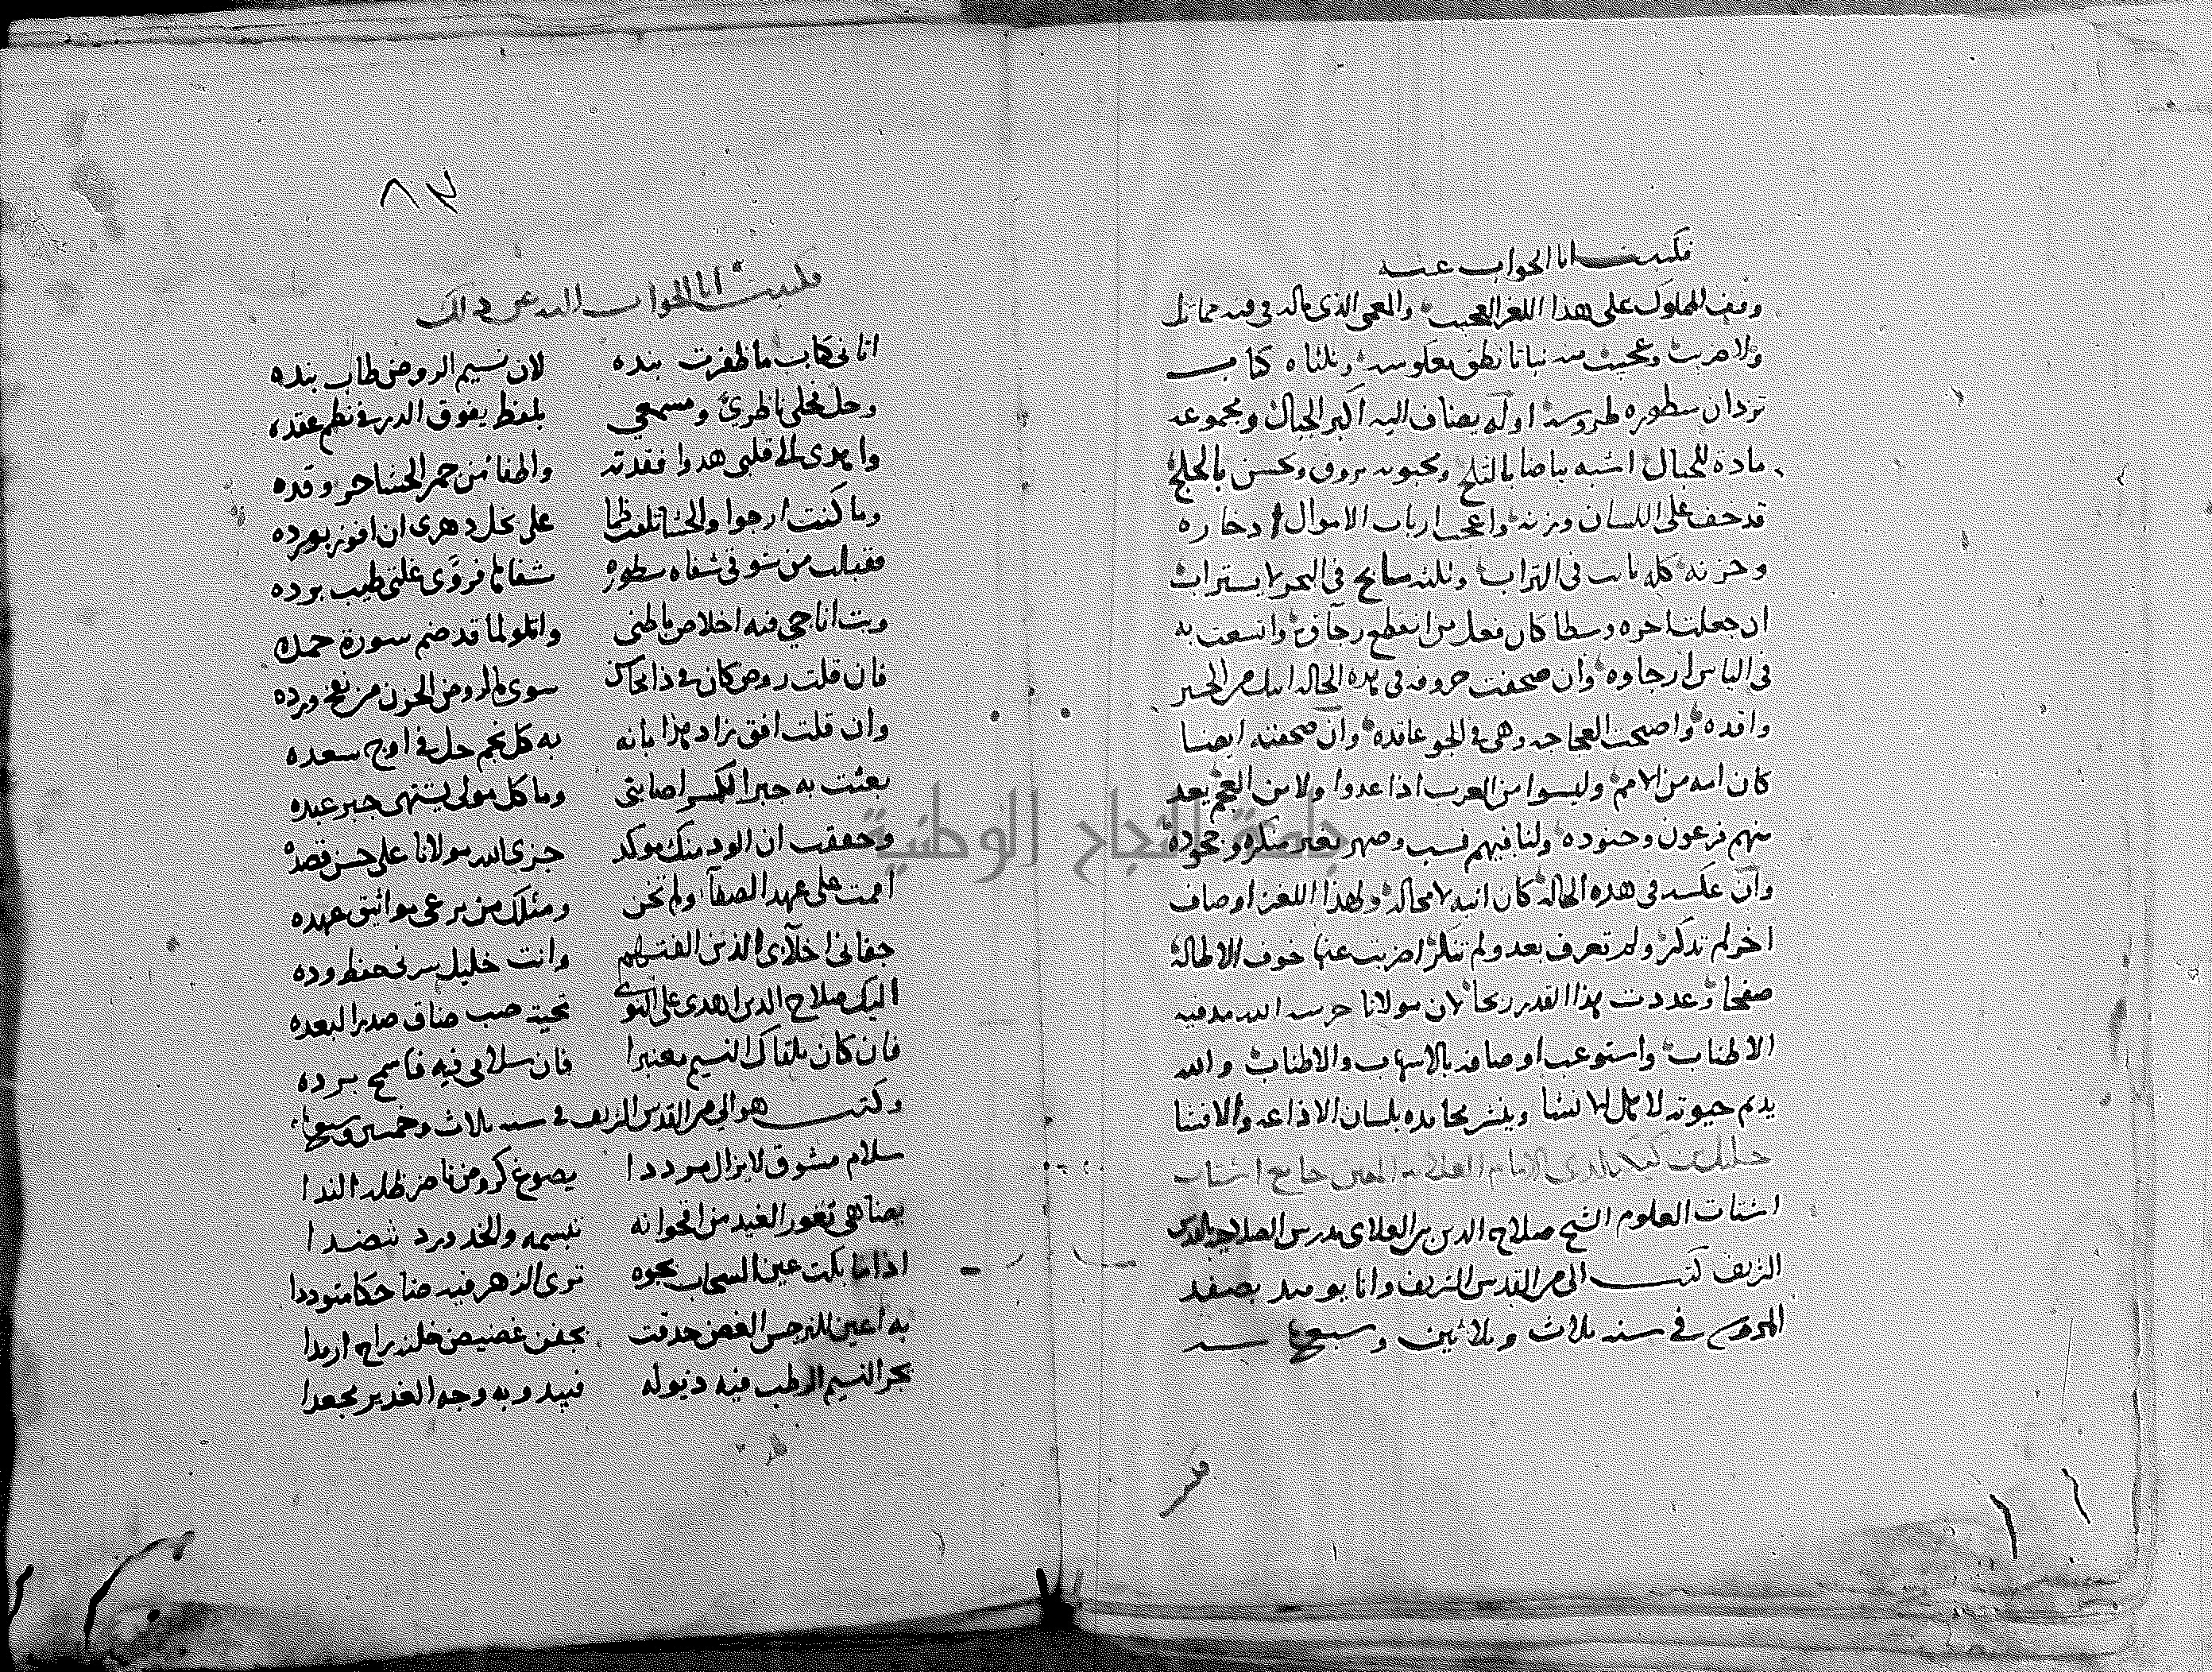 فكتبت انا الجواب عنه
وقف المملوك على هذا اللغز العجيب والمعمى الذي ماله في فنه مماثل
ولا ضريب وعجبت منه نباتا نطق بعلو سه وثلثاه كتاب
تزدان سطوره طروسه اوله يضاف اليه اكبر الجبال ومجموعه
مادة للحبال اشبه بياضا بالثلج ومحبوبه يروق ويحسن بالحلج
قد خف على اللسان وزنه واعجب ارباب الاموال ادخاره
وخزنه كله نابت في التراب وثلثه سابح في البحر لا يستراب
ان جعلت اخره وسطا كان فعل من انقطع رجاوه واتسعت به
في الياس ارجاوه وان صحفت حروفه في هذه الحالة
واقده واضحت العجاجه وهي في الجو عاقده وان صحفته ايضا
كان امه من الامم وليسوا من العرب اذا عدوا ولا من العجم يعد
منهم فرعون وجنوده ولنا فيهم نسب وصهر بغير منكره وجحوده
وان عكسه في هذه الحالة كان انيه لا محاله ولهذا اللغز اوصاف
اخر لم تذكر ولم تعرف بعد ولم تنكر اضربت عنها خوف الاطالة
صفحا وعددت هذا القدر ربحا لان مولانا حرسه الله مد فيه
الاطناب واستوعب اوصافه بالاسهاب والاطناب والله
يديم حيوته لاهل الانشا وينشر محامده بلسان الاذاعه والافشا
خليل بن كيكلدي الامام العلامه جامع اشتات
اشتات العلوم الشيخ صلاح الدين بن العلاى مدرس الصلاحيه بالقدس
الشريف كتب الي من القدس الشريف وانا يوميد بصفد
المحروسه في سنه ثلاث وثلاثين وسبعمايه
٨٣
فكتبت انا الجواب اليه عن ذلك
اتاني كتاب ما ظفرت بنده لان نسيم الروض طاب بنده
وحل فحلى ناظري ومسمعي بلفظ يفوق الدر في نظم عقده
واهدى الى قلبي هدوا فقدته واطفا من جمر الحشا حر وقده
وما كنت ارجوا والحشا تلفت ظما على كل دهري ان افوز بورده
فقبلت من شوقي شفاه سطوره شفاها فروى غلتي طيب برده
وبت اناجي فيه اخلاص باطني واتلو لما قد ضم سورة حمده
فان قلت روض كان في ذا سوى ما لروض الحزن من نفح ورده
وان قلت افق زاد هذا بانه به كل نجم حل في اوج سعده
بعثت به جبرا لكسر اصابني وما كل مولى يشتهى جبر عبده
وحققت ان الود منك موكد جزى الله مولانا على حسن قصده
اقمت على عهد الصفا ولم تخن ومثلك من يرعى مواثيق عهده
جفاني اخلاى الذين الفتهم وانت خليل سرني حفظ وده
اليك صلاح الدين اهدى على النوى تحية صب ضاق صدرا لبعده
فان كان يلقاك النسيم معنبرا فان سلامي فيه فاسمح برده
وكتب هو الي من القدس الشريف في سنه ثلاث وخمسين وسبعمايه
سلام مشوق لا يزال مرددا يضوع كروض ناضر ظله الندا
يضاهي ثغور الغيد من اقحوانه تبسمه والخد ورد تنضدا
اذا ما بكت عين السحاب بجوه ترى الزهر فيه ضاحكا متوددا
به اعين للنرجس الغض حدقت بجفن غضيض خلته راح ارمدا
يجر النسيم الرطب فيه ذيوله فيبدو به وجه الغدير مجعدا
جامعة النجاح الوطنية